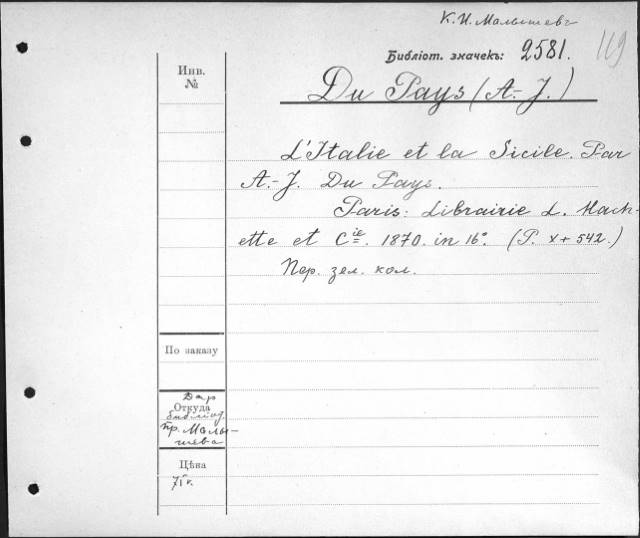 К. И. Малышевъ
Библіот. значекъ: 2581.
119
Инв.
№
Du Pays (A.-J.)
L'Italie et la Sicile. Par
A.-J. Du Pays.
Paris: Librairie L. Hach-
ette et Cie. 1870. in 16°. (P. x + 542.)
Пер. зел. кол.
По заказу
Дар
Откуда
библіот.
пр. Малы-
шева
Цѣна